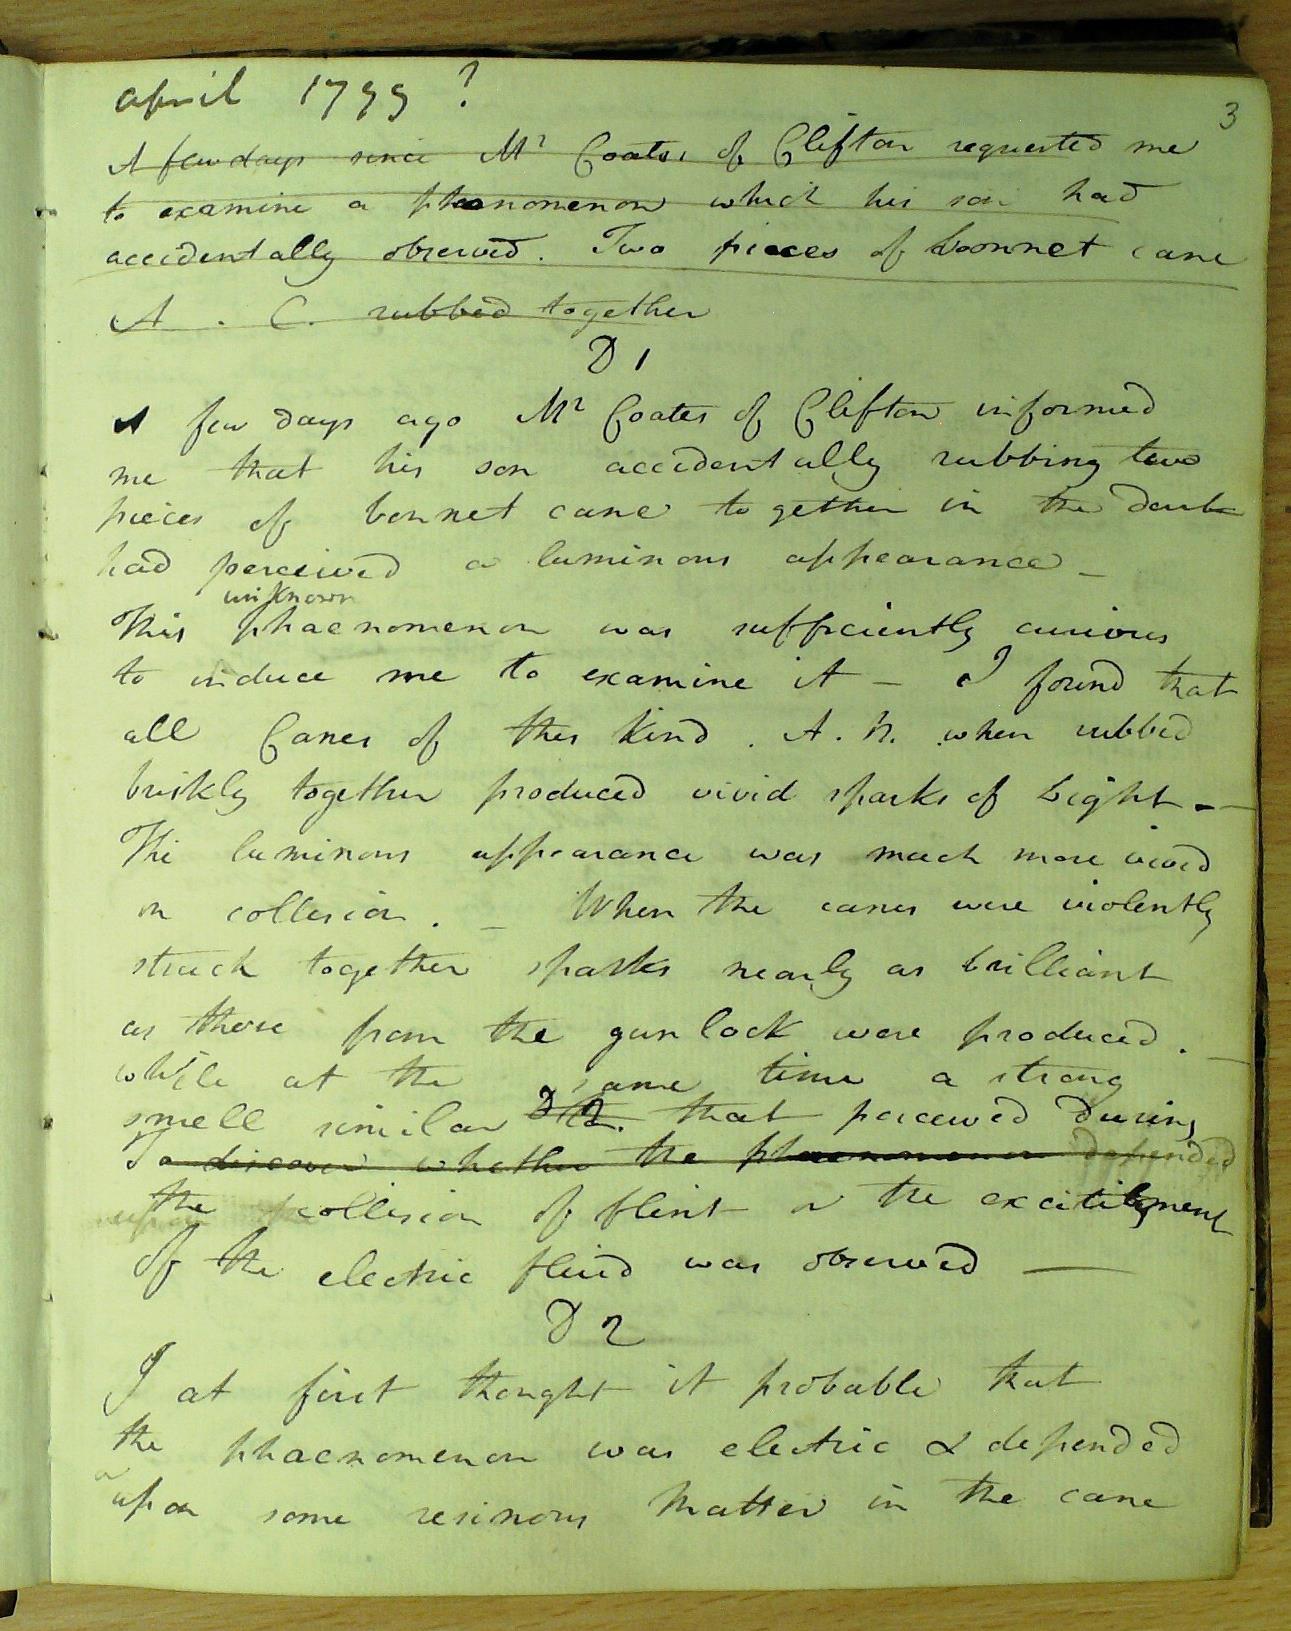 april 1799 ?
3
A few days since Mr Coates of Clifton requested me
to examine a phaenomenon which his son had
accidentally observed. Two pieces of bonnet cane
A . C. rubbed together
D 1
A few days ago Mr Coates of Clifton informed
me that his son accidentally rubbing two
pieces of bonnet cane together in the dark
had perceived a luminous appearance –
unknown
This phaenomenon was sufficiently curious
to induce me to examine it – I found that
all Canes of this kind . A. N. when rubbed
briskly together produced vivid sparks of Light –
The luminous appearance was much more vivid
on collision. – When the canes were violently
struck together sparks nearly as brilliant
as those from the gun lock were produced. –
while at the same time a strong
smell similar D 2. that perceived during
To discover whether the phaenomenon depended
upon the collision of flint or the excitement
of the electric fluid was observed —
D 2
I at first thought it probable that
the phaenomenon was electric & depended
upon some resinous Matter in the cane